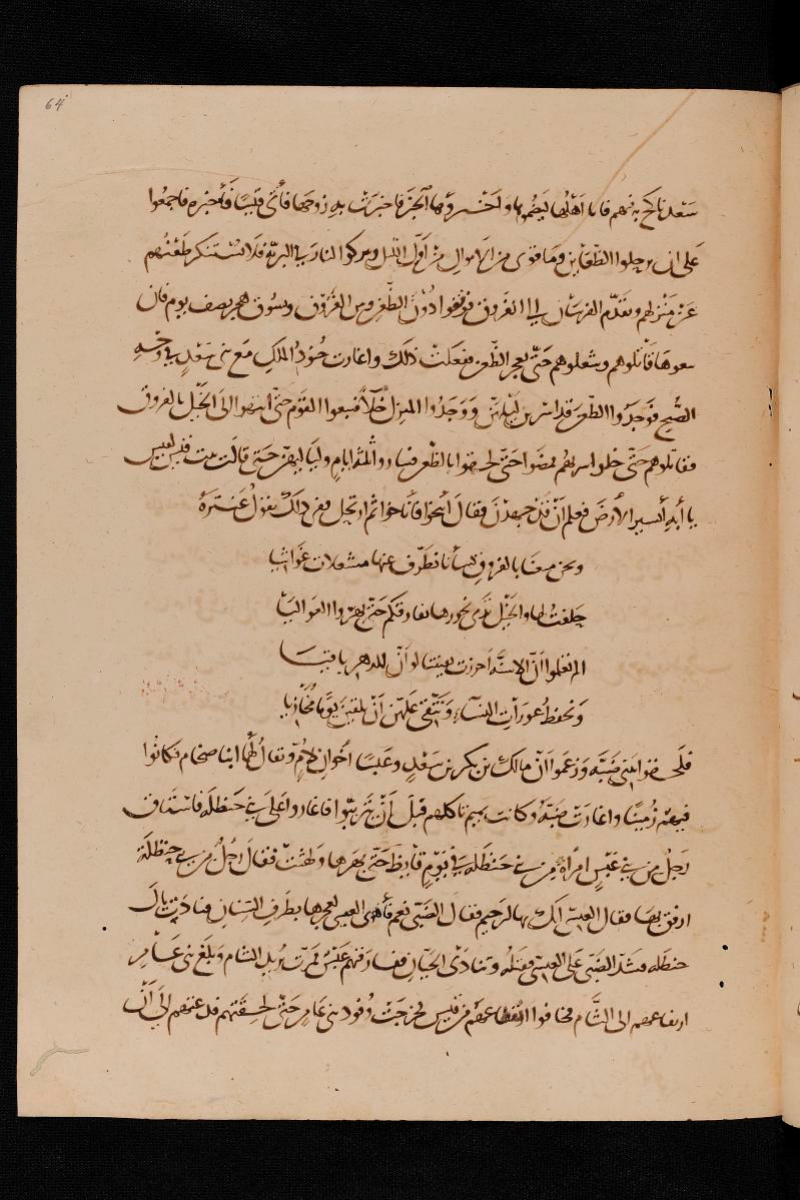 64
سعد ناكح به فيهم فاتاها اهلها ليضموها واخبروها الخبر فاخبرت به زوجها فأتى قيسًا فأخبره فاجمعوا
على ان يرحلوا الظعاين وما قوى من الاموال من اول الليل ويتركوا النار في الرثة فلا يستنكر ظعنهم
عن منزلهم وتقدم الفرسان الى الفروق فوقفوا دون الظعن وبين الفروق وسوق هجر نصف يوم فان
تبعوها قاتلوهم وشغلوهم حتى يعجز الظعن ففعلت ذلك واغارت جنود الملك مع بنى سعد في وجه
الصبح فوجدوا الظعن قد اسرين ليلتهن ووجدوا المنزل خلاءً فتبعوا القوم حتى انتهوا الى الخيل بالفروق
فقاتلوهم حتى خلوا سربهم فمضوا حتى لحقوا بالظعن فساروا ثلثة ايام ولياليهن حتى قالت بنت قيس لقيس
يا أبه أتسير الأرض فعلم ان قد جهدن فقال أنيخوا فأناخوا ثم ارتحل وفى ذاك يقول عنترة
ونحن منعنا بالفروق نساءنا نطرف عنها مشعلات غواشيا
حلفت لها والخيل تدمى نحورها نفارقكم حتى تهزوا العواليا
الم تعلموا أن الاسنة احرزت بقيتنا لو أن للدهر باقيا
ونحفظ عورات النساء ونتقى عليهن أن يلقين يومًا مخازيا
فلحقوا ببنى ضبة وزعموا أن مالك بن بكر بن سعد وعبسًا اخوان لأم ويقال لهما ابنا ضخام فكانوا
فيهم زمينًا واغارت ضبة وكانت تميم تاكلهم قبل أن يترببوا فاغاروا على بنى حنظلة فاستاق
رجل من بنى عبس امرأة من بنى حنظلة في يوم قايظ حتى بهرها ولهثت فقال رجل من بنى حنظلة
ارفق بها فقال العبسى انك بها لرحيم فقال الضبى نعم فأهوى العبسى لعجزها بطرف السنان فنادت يال
حنظلة فشد الضبى على العبسى فقتله وتنادى الحيان ففارقتهم عبس فمرت تريد الشام وبلغ بنى عامر
ارتفاعهم الى الشام فخافوا انقطاعهم من قيس فخرجت وفود بنى عامر حتى لحقتهم فدعتهم إلى أن